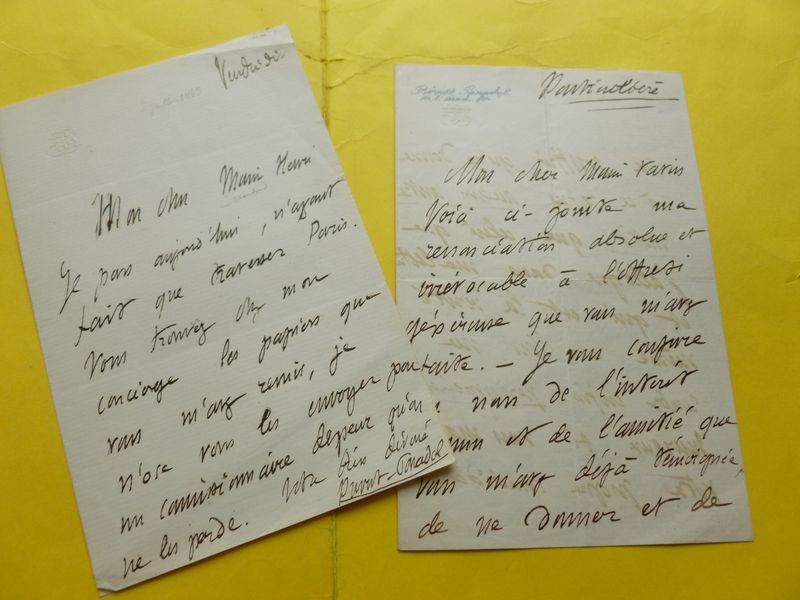 Vendredi.
juillet 1869
Mon cher Marin Henri
Je pars aujourd'hui, n'ayant
fait que traverser Paris.
Vous trouvez chez mon
concierge les papiers que
vous m'avez remis, je
n'ose vous les envoyer par
un commissionnaire de peur qu'on
ne les perde. Votre très dévoué
Prévost-Paradol
Prévost-Paradol
de l'Acad. fr.
Particulière
Mon cher Marin
Voici ci-jointe ma
renonciation absolue et
irrévocable à l'offre si
généreuse que vous m'avez
faite. — Je vous conjure
nom de l'intérêt
et de l'amitié que
vous m'avez déjà témoignée,
de ne donner et de